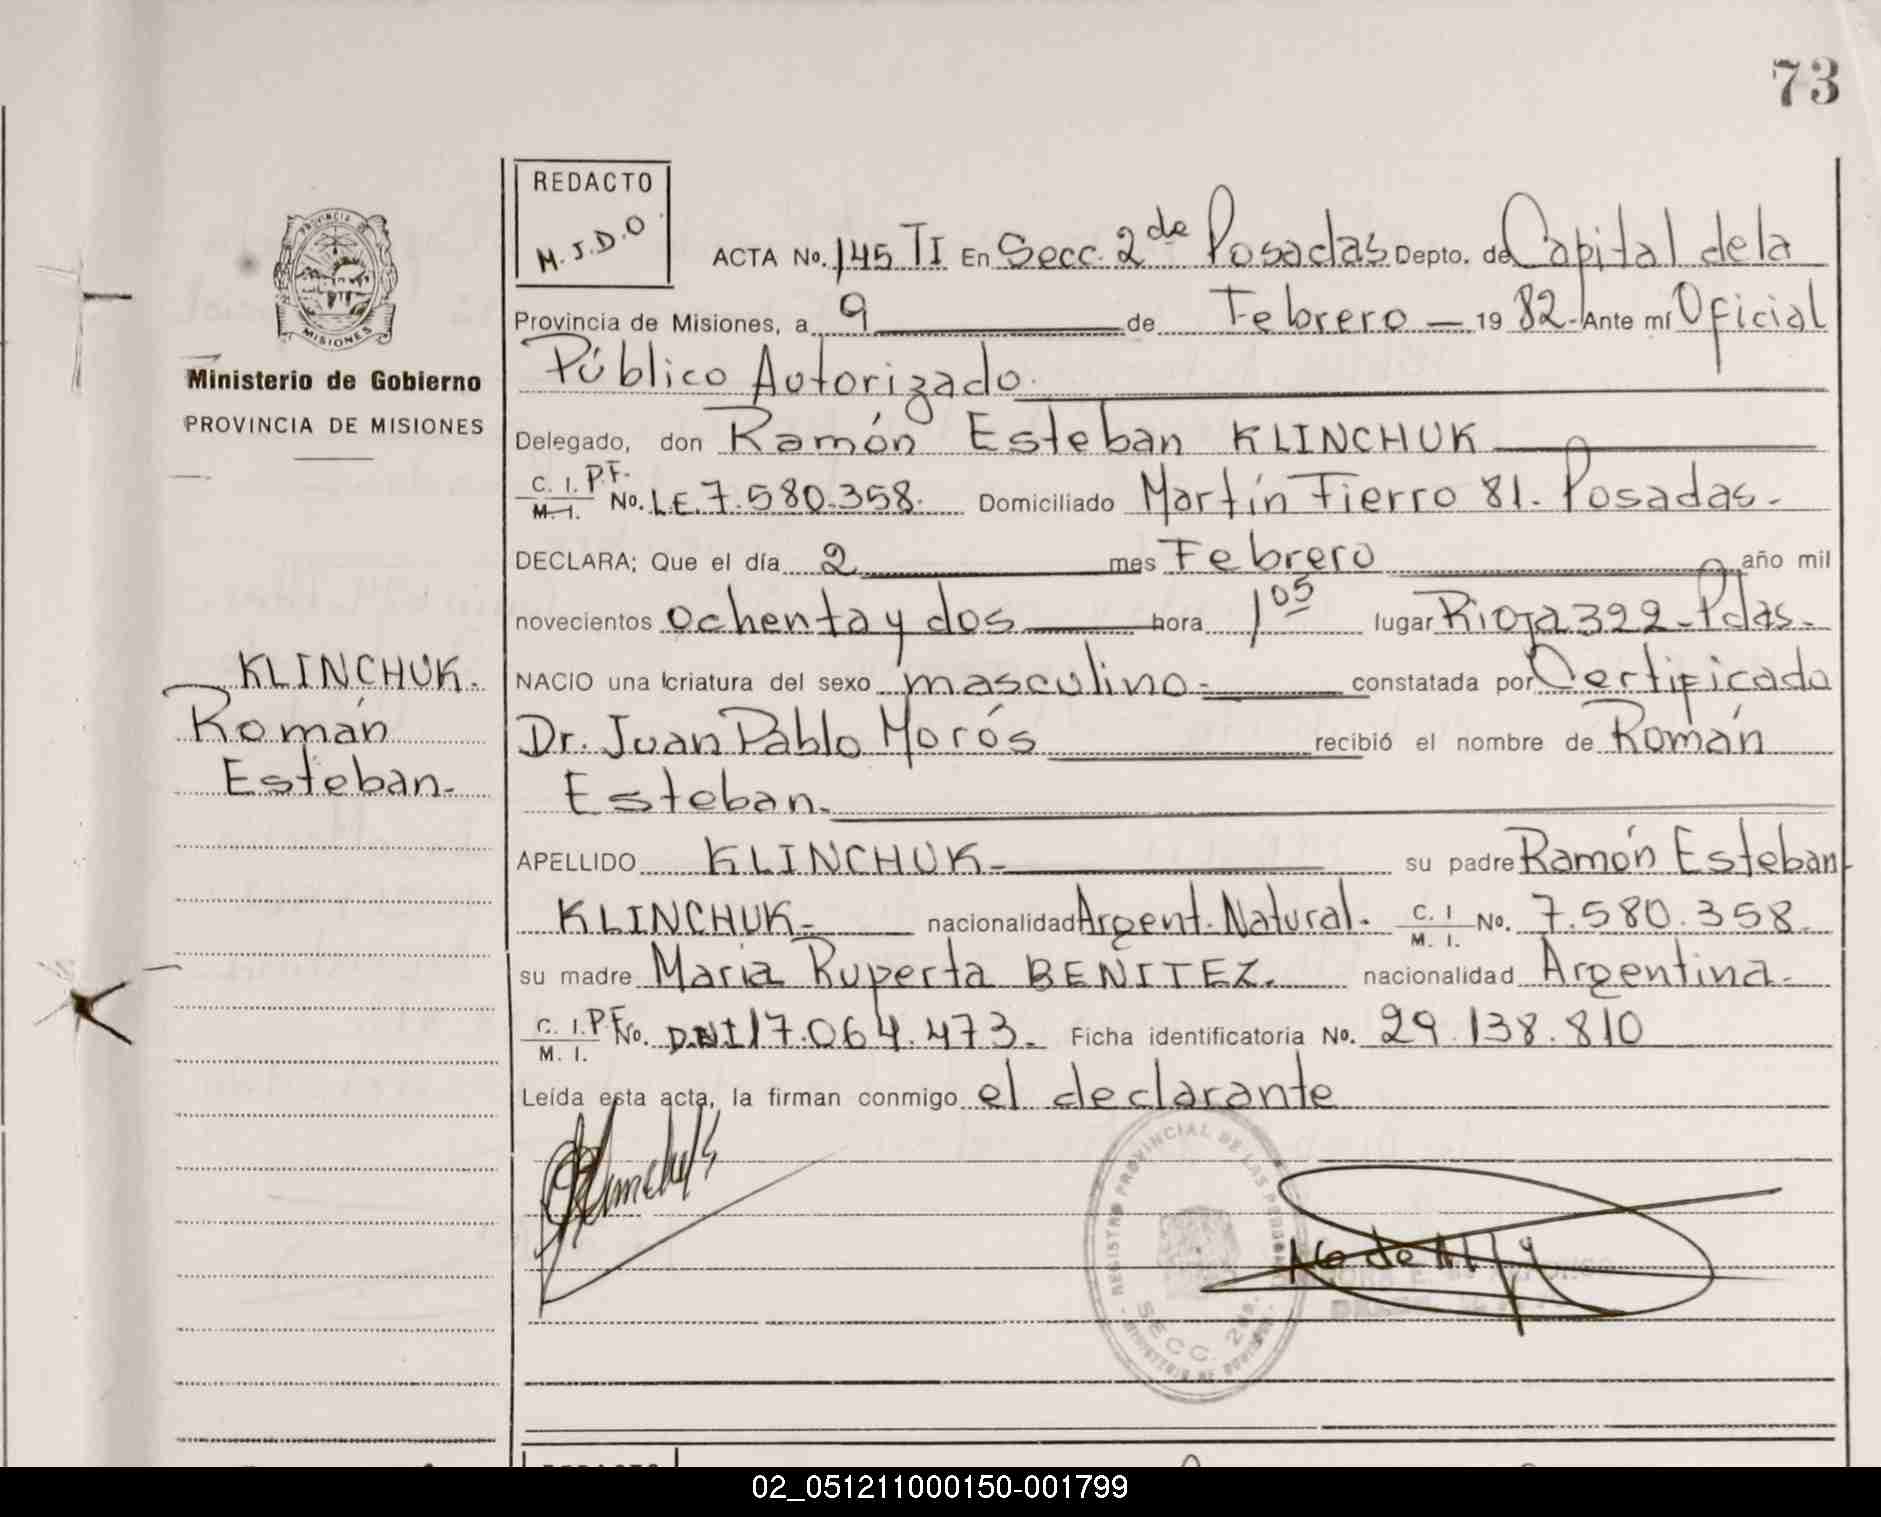 73
REDACTO
M.J.D.O
PROVINCIA DE
MISIONES
Ministerio de Gobierno
PROVINCIA DE MISIONES
KLINCHUK.
Román
Esteban.
ACTA No. 145 TI En Secc. 2da Posadas Depto. de Capital de la
Provincia de Misiones, a 9 de Febrero 1982. Ante mí Oficial
Público Autorizado.
Delegado, don Ramón Esteban KLINCHUK
C. I. P.F.
M. I. No. L.E. 7.580.358. Domiciliado Martín Fierro 81. Posadas.
DECLARA; Que el día 2 mes Febrero año mil
novecientos ochenta y dos hora 1 05 lugar Rioja 322 - Pdas.
NACIO una criatura del sexo masculino. constatada por Certificado
Dr. Juan Pablo Morós recibió el nombre de Román
Esteban.
APELLIDO KLINCHUK - su padre Ramón Esteban
KLINCHUK - nacionalidad Argent. Natural. C. I M. I. No. 7.580.358.
su madre Maria Ruperta BENITEZ. nacionalidad Argentina.
C. I. P.F. M. I. No. D.N.I 17.064.473. Ficha identificatoria No. 29.138.810
Leída esta acta, la firman conmigo el declarante
REGISTRO PROVINCIAL DE LAS PERSONAS
SECC. 2da.
02_051211000150-001799